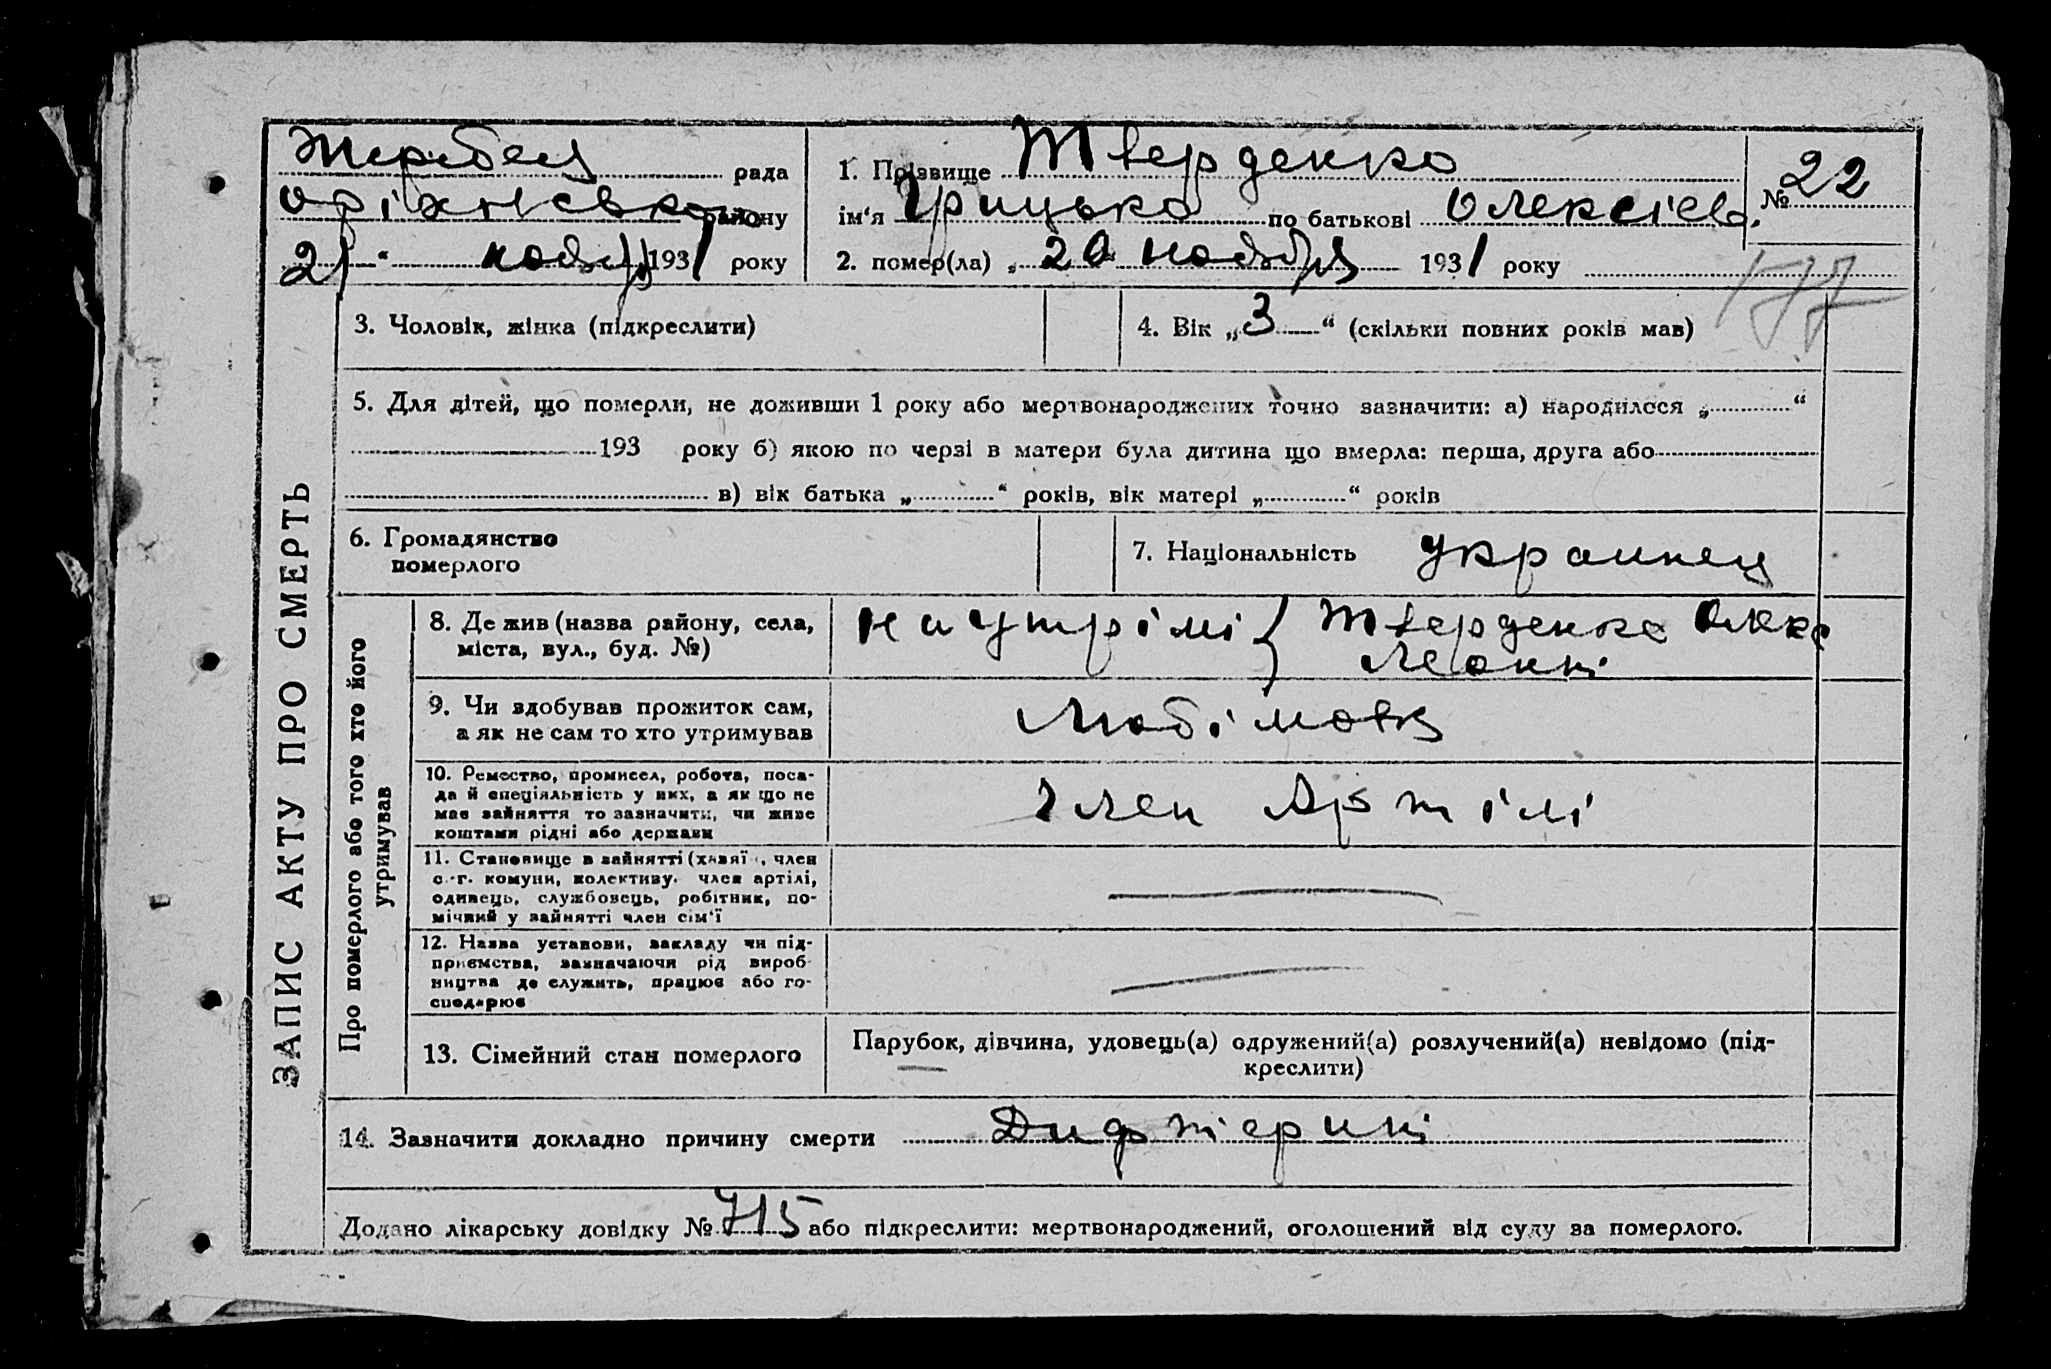 Жеребец рада
Оріхнівсько району
21 " ноября 1931 року
1. Прізвище Тверденко
ім'я Грицько по батькові Олексієв.
2. помер(ла) „ 20 ноября 1931 року
№ 22
177
3. Чоловік, жінка (підкреслити)
4. Вік „ 3 “ (скільки повних років мав)
5. Для дітей, що померли, не доживши 1 року або мертвонароджених точно зазначити: а) народилося „ “
193 року б) якою по черзі в матери була дитина що вмерла: перша, друга або
в) вік батька „ “ років, вік матері „ “ років
6. Громадянство
померлого
7. Національність украинец
ЗАПИС АКТУ ПРО СМЕРТЬ
Про померлого або того хто його
утримував
8. Де жив (назва району, села,
міста, вул., буд. №)
на утрімі } Тверденко Олек
9. Чи здобував прожиток сам,
а як не сам то хто утримував
Любімовк
10. Ремество, промисел, робота, поса-
да й спеціяльність у них, а як що не
має зайняття то зазначити, чи живе
коштами рідні або держави
Член Артілі
11. Становище в зайнятті (хазяїн, член
с.-г. комуни, колективу, член артілі,
одинець, службовець, робітник, по-
мічний у зайнятті член сім'ї
12. Назва установи, закладу чи під-
приємства, зазначаючи рід вироб-
ництва де служить, працює або го-
сподарює
13. Сімейний стан померлого
Парубок, дівчина, удовець(а) одружений(а) розлучений(а) невідомо (під-
креслити)
14. Зазначити докладно причину смерти Дифтерит
Додано лікарську довідку № 715 або підкреслити: мертвонароджений, оголошений від суду за померлого.